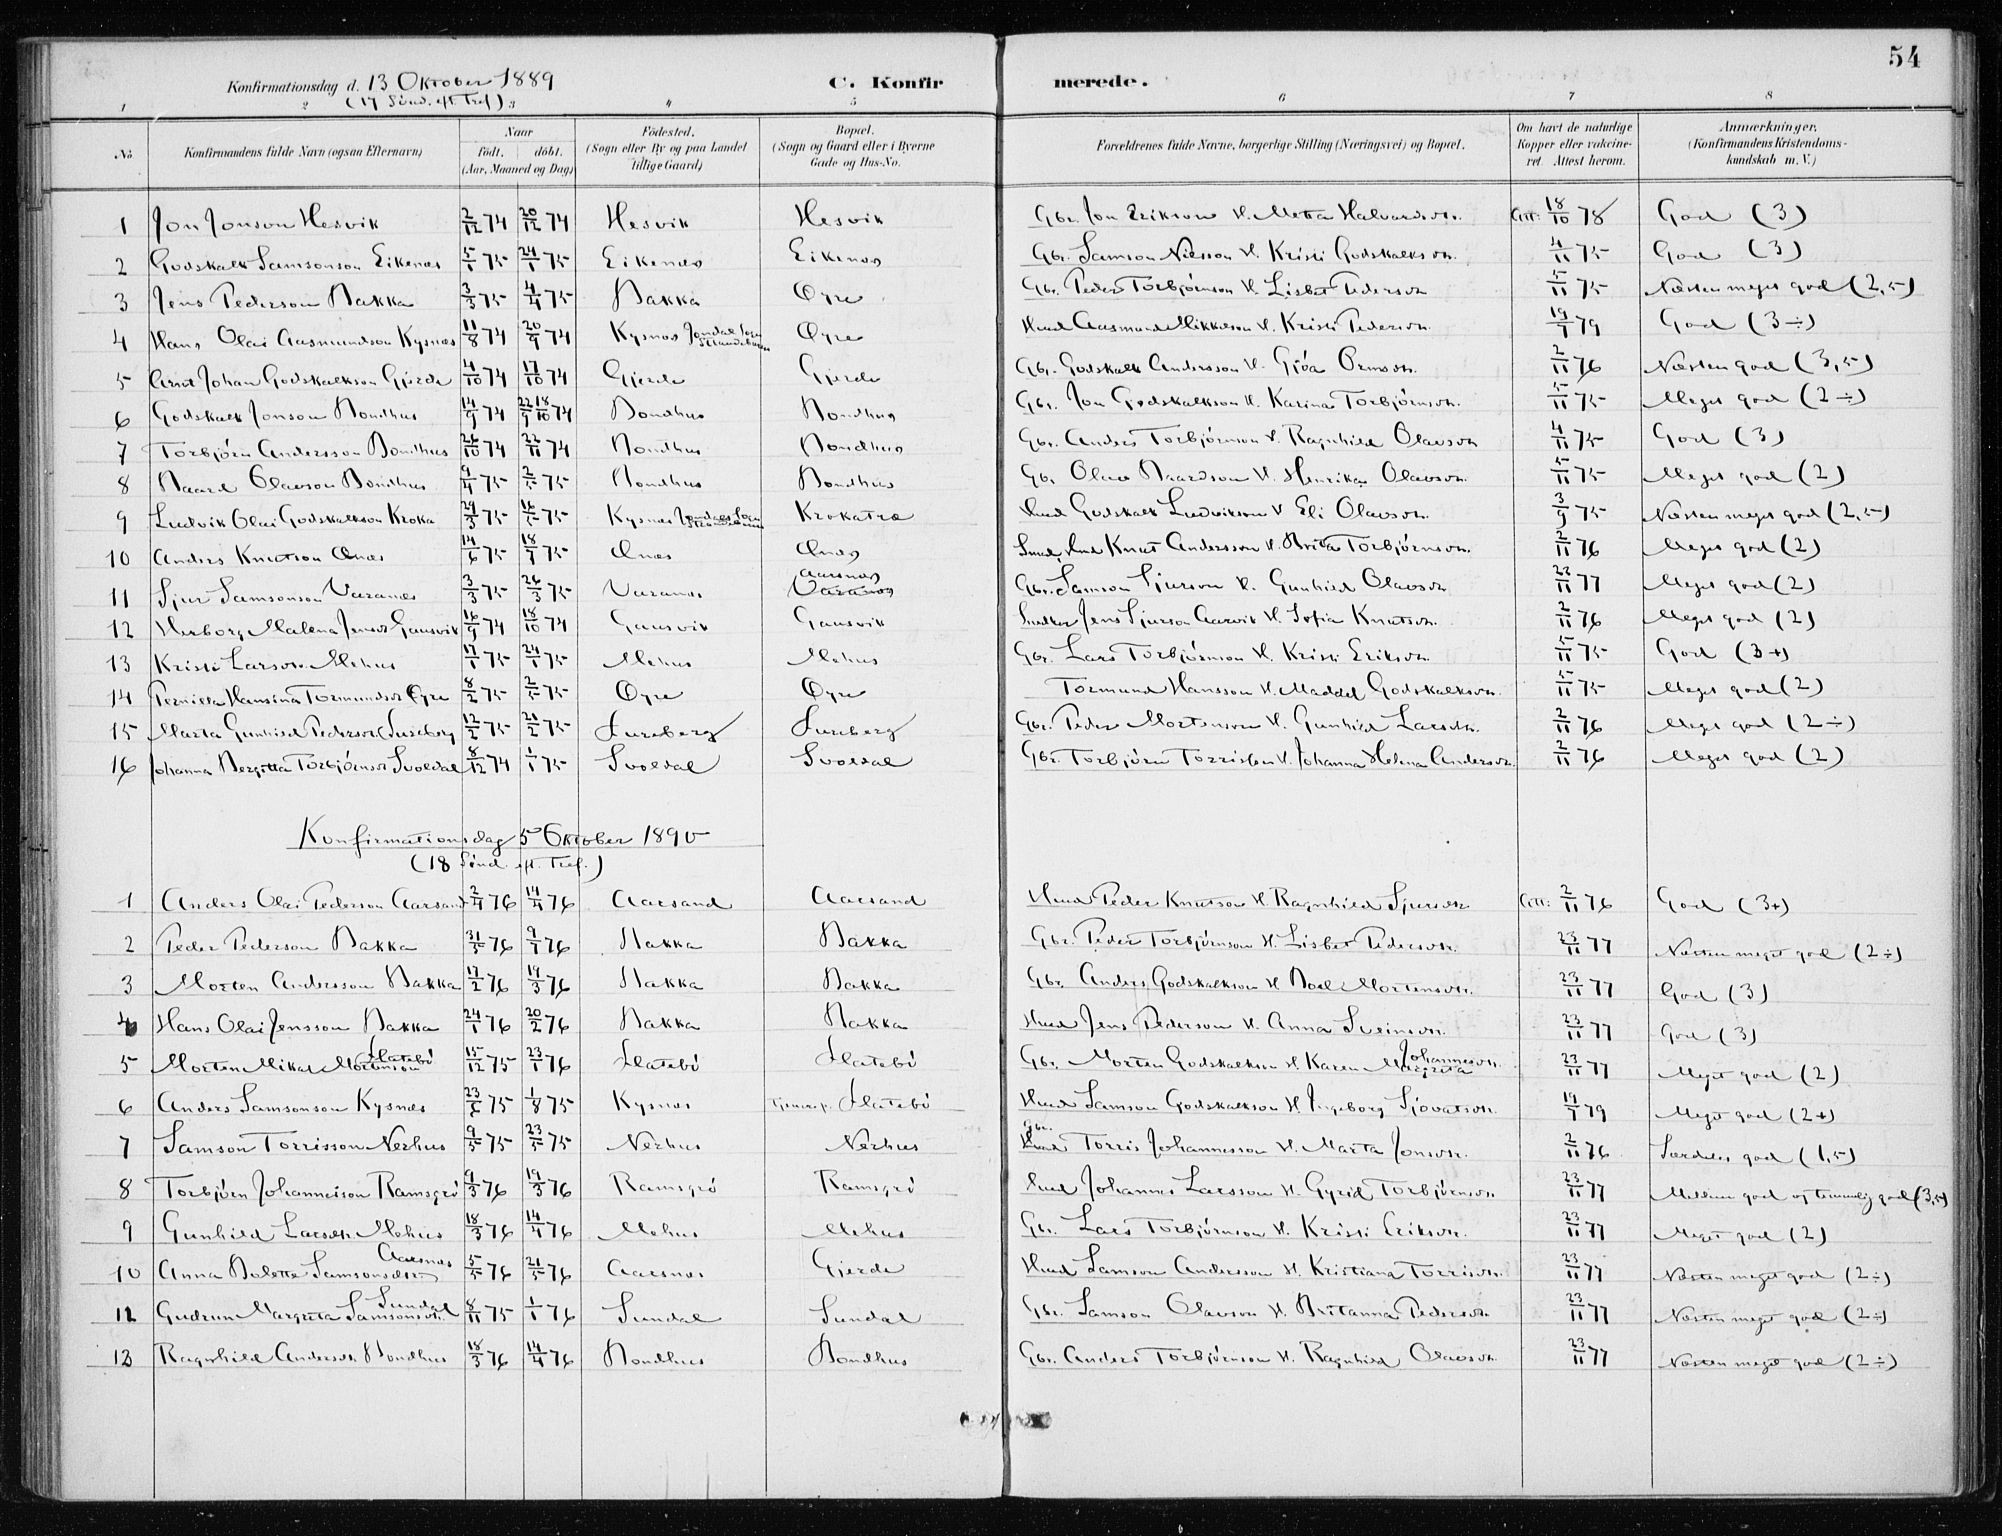 54
Konfirmationsdag d. 13 Oktober 1889
(17 Sönd. eft. Tref.)
C. Konfirmerede.
1 2 3 4 5 6 7 8
No
Konfirmandens fulde Navn (ogsaa Efternavn)
Naar
födt. döbt.
(Aar, Maaned og Dag)
Födested.
(Sogn eller By og paa Landet
tillige Gaard)
Bopæl.
(Sogn og Gaard eller i Byerne
Gade og Hus-No.
Forældrenes fulde Navne, borgerlige Stilling (Næringsvei) og Bopæl.
Om havt de naturlige
Kopper eller vakcine-
ret. Attest herom.
Anmærkninger.
(Konfirmandens Kristendoms-
kundskab m. V.)
1 Jon Jonson Hesvik 2/12 74 20/12 74 Hesvik Hesvik Gbr. Jon Erikson H. Metta Halvardsdr. Att: 18/10 78 God (3)
2 Godskalk Samsonson Eikenæs 5/1 75 24/1 75 Eikenæs Eikenæs Gbr. Samson Nilsson H. Kristi Godskalksdr. 4/11 75 God (3)
3 Jens Pederson Bakka 3/3 75 4/4 75 Bakka Öyre Gbr. Peder Torbjörnson H. Lisbet Pedersdr 5/11 75 Næsten meget god (2,5)
4 Hans Olai Aasmundson Kysnæs 11/8 74 20/9 74 Kysnæs Jondal Sogn Strandebarm Öyre Hmd Aasmund Mikkelson H. Kristi Pedersdr. 19/7 79 God (3÷)
5 Arnt Johan Godskalkson Gjerde 4/10 74 17/10 74 Gjerde Gjerde Gbr. Godskalk Andersson H. Gjöa Ormsdr. 2/11 76 Næsten god (3,5)
6 Godskalk Jonson Bondhus 14/9 74 22/9 18/10 74 Bondhus Bondhus Gbr. Jon Godskalkson H. Karina Torbjörnsdr. 5/11 75 Meget god (2÷)
7 Torbjörn Andersson Bondhus 26/10 74 22/11 74 Bondhus Bondhus Gbr. Anders Torbjörnson H. Ragnhild Olavsdr 4/11 75 God (3)
8 Baard Olavson Bondhus 9/4 75 2/5 75 Bondhus Bondhus Gbr. Olav Baardson H. Henrika Olavsdr. 5/11 75 Meget god (2)
9 Ludvik Olai Godskalkson Kroka 29/3 75 16/5 75 Kysnæs Jondals Sogn Strandebarm Krokatræ Hmd Godskalk Ludvikson H Eli Olavsdr. 3/9 75 Næsten meget god (2,5)
10 Anders Knutson Ænæs 14/6 75 18/7 75 Ænæs Ænæs Smed, Hmd Knut Andersson H. Brita Torbjörnsdr. 2/11 76 Meget god (2)
11 Sjur Samsonson Varanæs 3/3 75 26/3 75 Varanæs Aarsnæs Varanæs Gbr. Samson Sjurson H. Gunhild Olavsdr 23/11 77 Meget god (2)
12 Herborg Malena Jensdr Gausvik 16/9 74 18/10 74 Gausvik Gausvik Jens Sjurson Aarvik H. Sofia Knutsdr. 2/11 76 Meget god (2)
13 Kristi Larsdr. Mehus 17/1 75 24/1 75 Mehus Mehus Gbr. Lars Torbjörnson H. Kristi Eriksdr. 5/11 75 God (3+)
14 Pernilla Hansina Tormundsdr Öyre 8/2 75 2/5 75 Öyre Öyre Tormund Hansson H. Maddel Godskalksdr. 5/11 75 Meget god (2)
15 Marta Gunhild Pedersdr Fureberg 12/2 75 21/2 75 Fureberg Fureberg Gbr. Peder Mortenson H. Gunhild Larsdr. 2/11 76 Meget god (2÷)
16 Johanna Bergitta Torbjörnsdr Svoldal 8/12 74 1/1 75 Svoldal Svoldal Gbr. Torbjörn Torrisson H. Johanna Helena Andersdr. 2/11 76 Meget god (2)
Konfirmationsdag 5 Oktober 1890
(18 Sönd. eft. Tref.)
1 Anders Olai Pederson Aarsand 2/4 76 14/4 76 Aarsand Aarsand Hmd Peder Knutson H. Ragnhild Sjursdr Att: 2/11 76 God (3+)
2 Peder Pederson Bakka 31/5 76 9/7 76 Bakka Bakka Gbr. Peder Torbjörnson H. Lisbet Pedersdr. 23/11 77 Næsten meget god (2÷)
3 Morten Andersson Bakka 17/2 76 19/3 76 Bakka Bakka Gbr. Anders Godskalkson H Boel Mortensdr. 23/11 77 God (3)
4 Hans Olai Jensson Bakka 24/1 76 20/2 76 Bakka Bakka Hmd Jens Pederson H. Anna Sveinsdr. 23/11 77 God (3)
5 Morten Mikal Mortenson Flatebö 15/12 75 23/1 76 Flatebö Flatebö Gbr. Morten Godskalkson H Karen Margreta Johannesdr. 23/11 77 Meget god (2)
6 Anders Samsonson Kysnæs 23/6 75 1/8 75 Kysnæs Flatebö Hmd Samson Godskalkson H. Ingeborg Sjovatsdr. 19/7 79 Meget god (2+)
7 Samson Torrisson Nerhus 9/5 75 23/5 75 Nerhus Nerhus Gbr. Torris Johannesson H. Marta Jonsdr. 2/11 76 Særdeles god (1,5)
8 Torbjörn Johannesson Ramsgrö 9/3 76 19/3 76 Ramsgrö Ramsgrö Hmd Johannes Larsson H. Gyrid Torbjörnsdr 23/11 77 Mellem god og temmelig god (3,5)
9 Gunhild Larsdr. Mehus 18/3 76 14/4 76 Mehus Mehus Gbr. Lars Torbjörnson H. Kristi Eriksdr. 23/11 77 Meget god (2)
10 Anna Bolette Samsonsdtr Aarsnæs 5/5 76 21/5 76 Aarsnæs Gjerde Hmd Samson Andersson H. Kristiana Torrisdr. 23/11 77 Næsten meget god (2÷)
11 Gudrun Margreta Samsonsdr. Sundal 8/11 75 1/1 76 Sundal Sundal Gbr. Samson Olavson H. Britanna Pedersdr 23/11 77 Næsten meget god (2÷)
12 Ragnhild Andersdr Bondhus 18/3 76 14/4 76 Bondhus Bondhus Gbr. Anders Torbjörnson H. Ragnhild Olavsdr. 23/11 77 Næsten meget god (2÷)